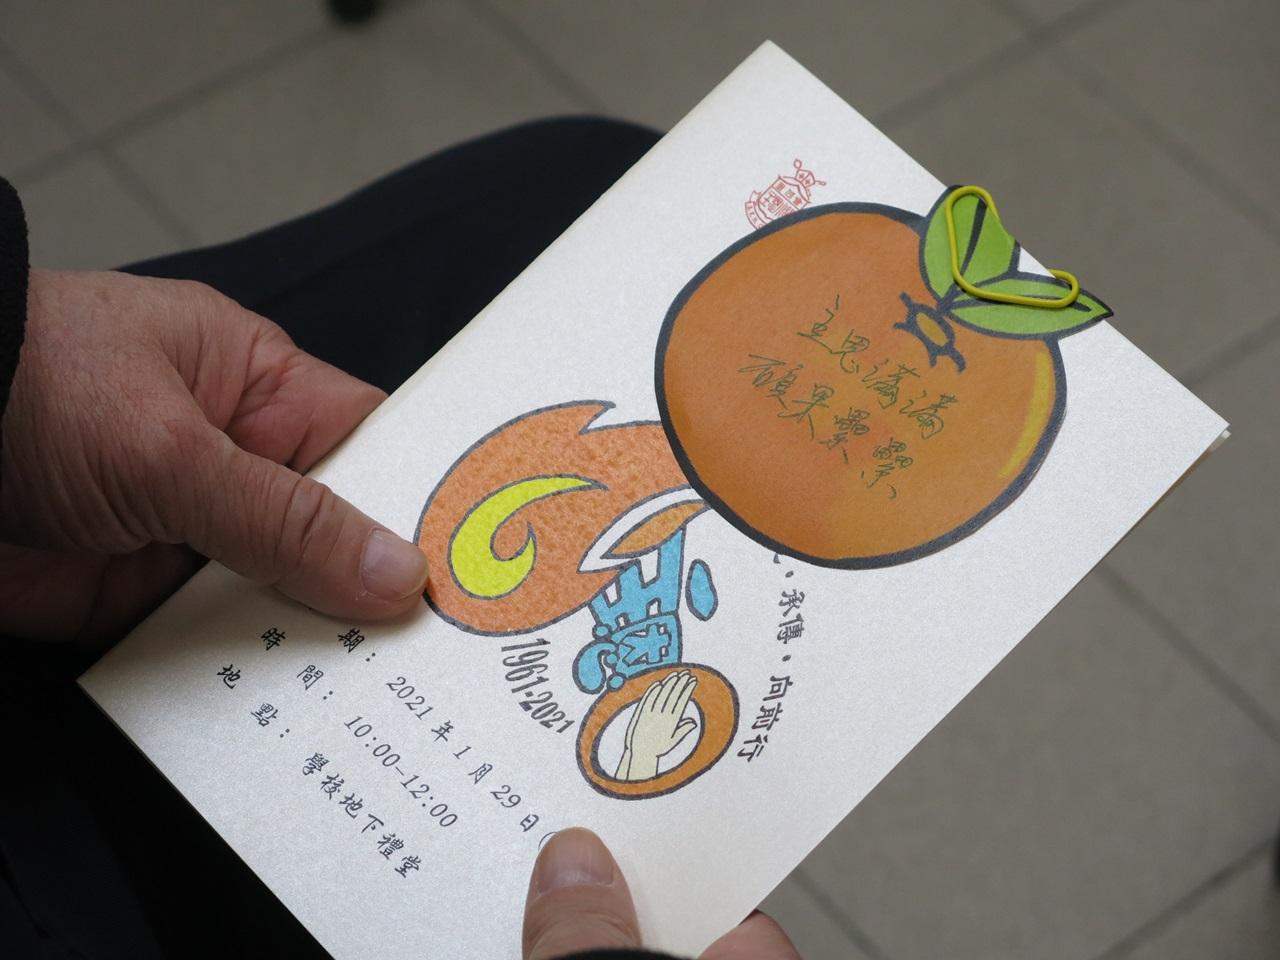 主恩滿滿
碩果纍纍
承傳·向前行
主恩
1961-2021
期：2021年1月29日
時間：10:00-12:00
地點：學校地下禮堂